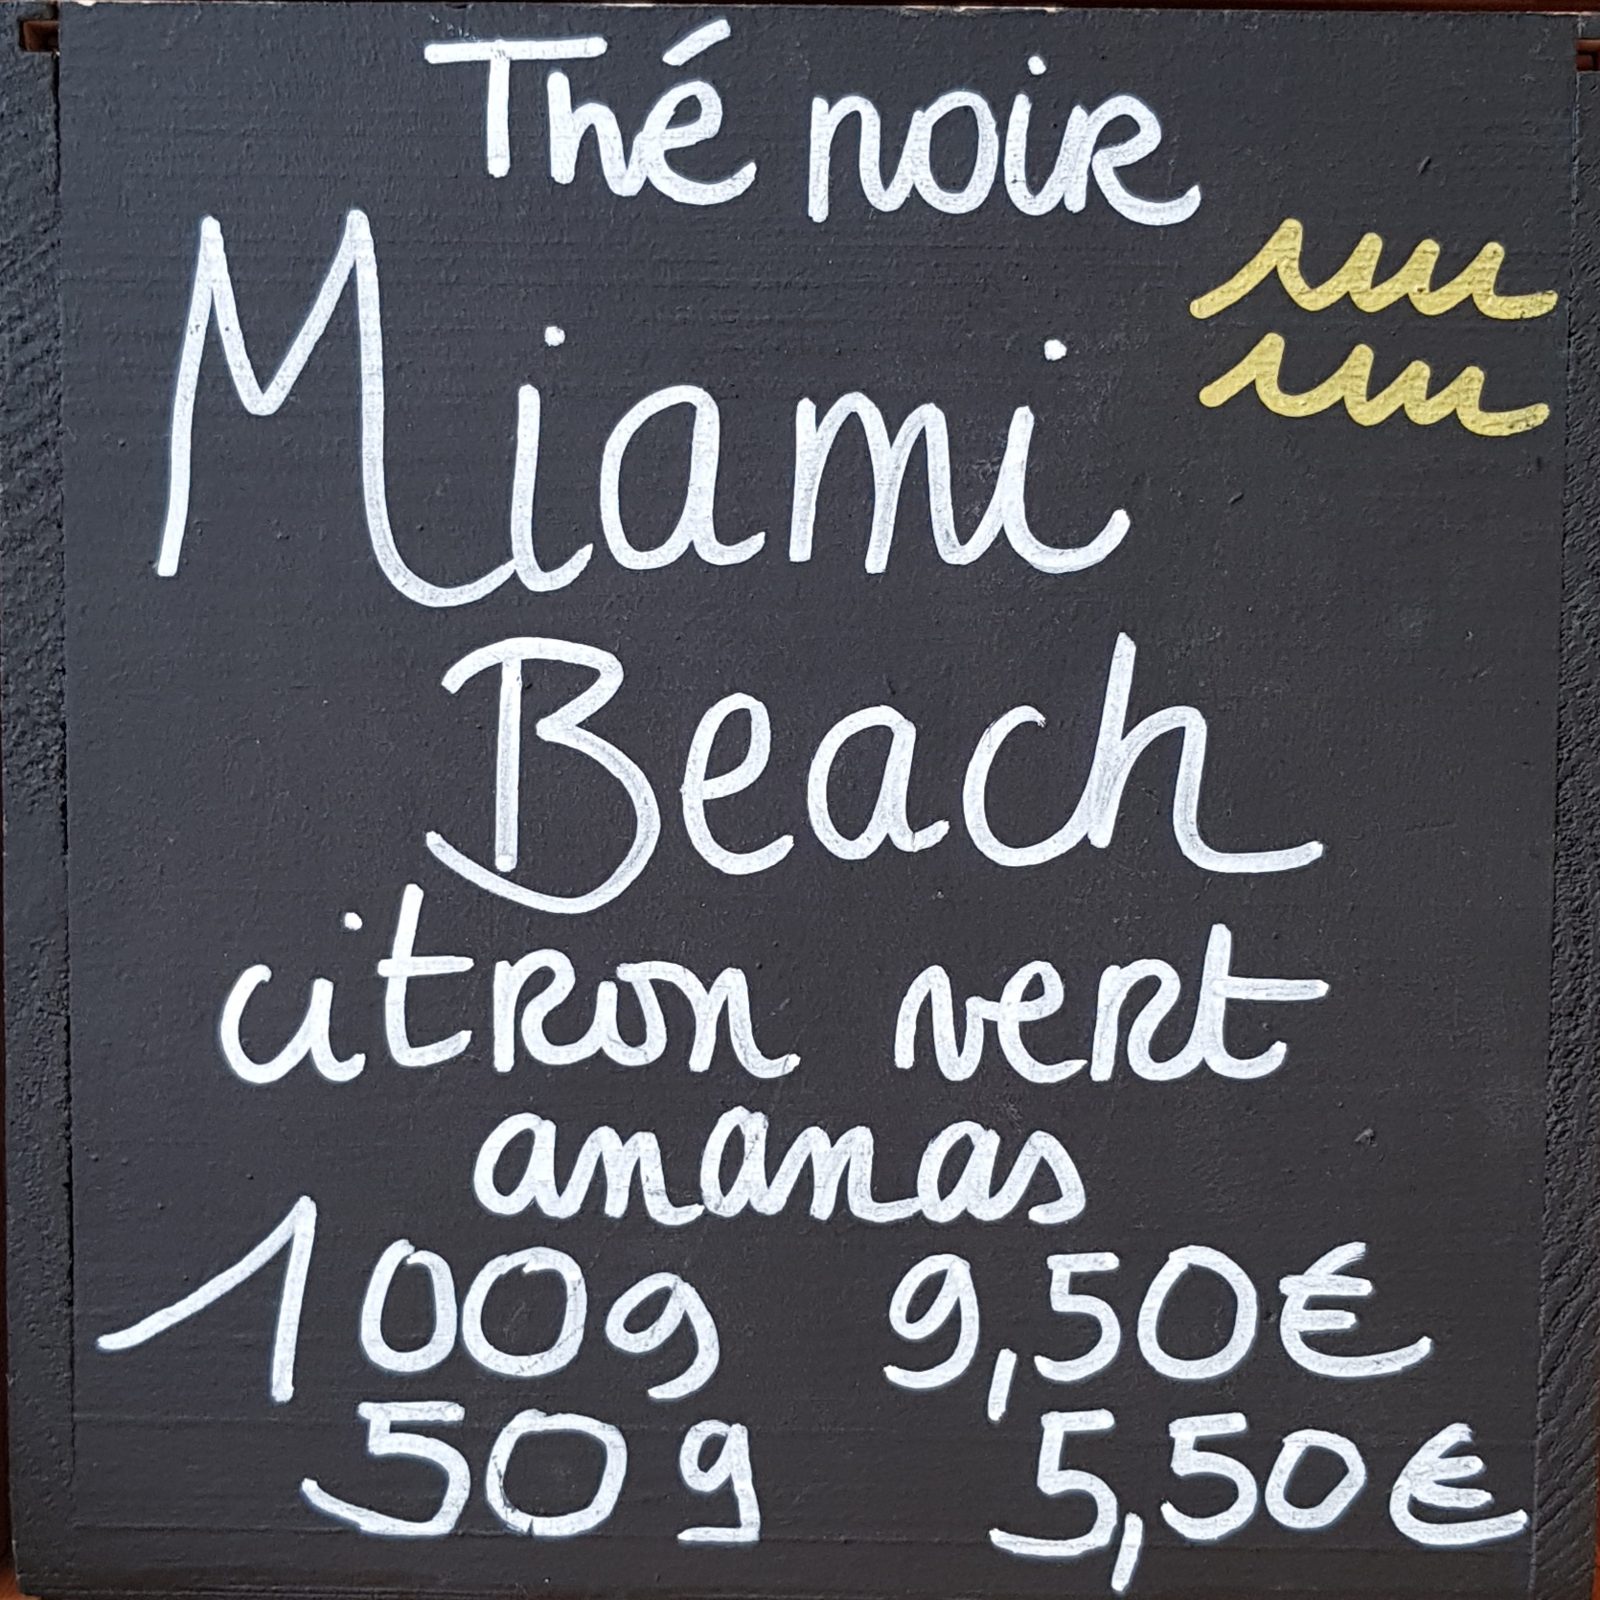 Thé noir
Miami
Beach
citron vert
ananas
100g 9,50€
50g 5,50€